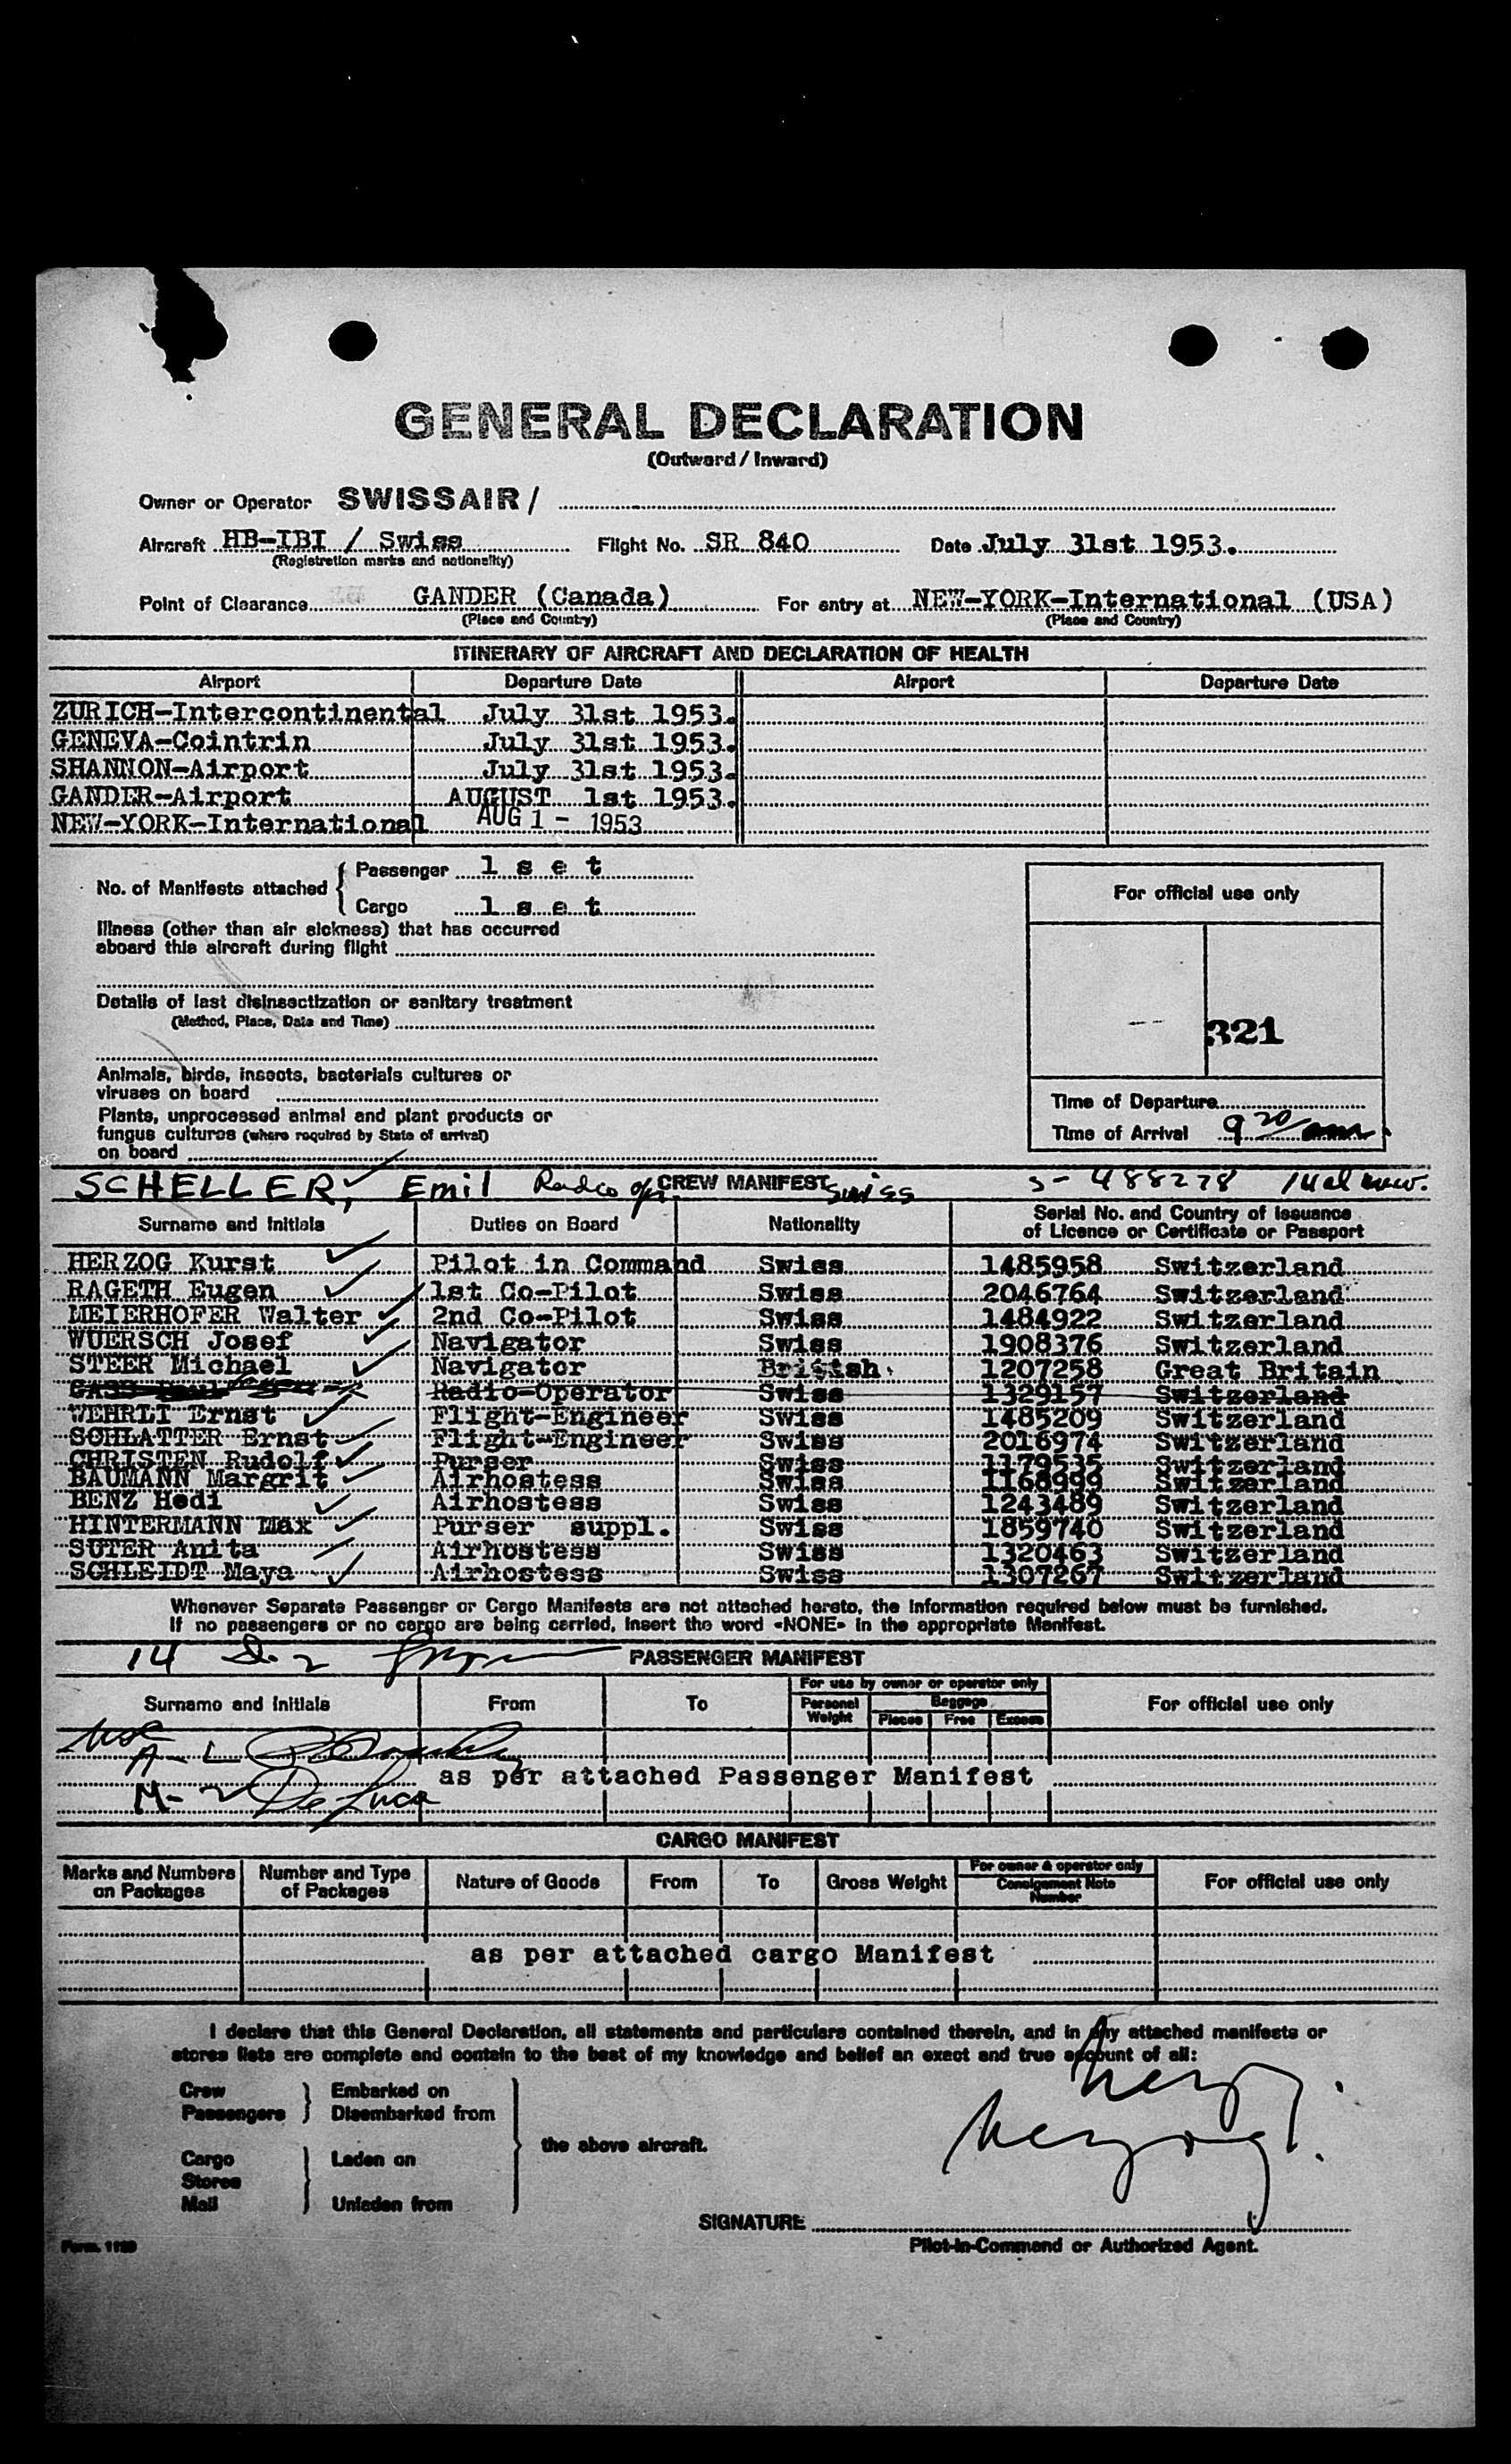 GENERAL DECLARATION
(Outward / Inward)
Owner or Operator SWISSAIR /
Aircraft HB-IBI / Swiss Flight No. SR 840 Date July 31st 1953.
(Registration marks and nationality)
Point of Clearance GANDER (Canada) For entry at NEW-YORK-International (USA)
(Place and Country) (Place and Country)
ITINERARY OF AIRCRAFT AND DECLARATION OF HEALTH
Airport Departure Date Airport Departure Date
ZURICH-Intercontinental July 31st 1953.
GENEVA-Cointrin July 31st 1953.
SHANNON-Airport July 31st 1953.
GANDER-Airport AUGUST 1st 1953.
NEW-YORK-International AUG 1 - 1953
No. of Manifests attached
Passenger 1 s e t
Cargo 1 s e t
For official use only
Illness (other than air sickness) that has occurred
aboard this aircraft during flight
Details of last disinsectization or sanitary treatment
(Method, Place, Date and Time)
321
Animals, birds, insects, bacterials cultures or
viruses on board
Plants, unprocessed animal and plant products or
fungus cultures (where required by State of arrival)
on board
Time of Departure
Time of Arrival 9 20/
SCHELLER, Emil Radio op. CREW MANIFEST Swiss S- 488278
Surname and Initials Duties on Board Nationality Serial No. and Country of Issuance
of Licence or Certificate or Passport
HERZOG Kurst Pilot in Command Swiss 1485958 Switzerland
RAGETH Eugen 1st Co-Pilot Swiss 2046764 Switzerland
MEIERHOFER Walter 2nd Co-Pilot Swiss 1484922 Switzerland
WUERSCH Josef Navigator Swiss 1908376 Switzerland
STEER Michael Navigator British 1207258 Great Britain
Radio-Operator Swiss 1329157 Switzerland
WEHRLI Ernst Flight-Engineer Swiss 1485209 Switzerland
SCHLATTER Ernst Flight-Engineer Swiss 2016974 Switzerland
CHRISTEN Rudolf Purser Swiss 1179535 Switzerland
BAUMANN Margrit Airhostess Swiss 1168999 Switzerland
BENZ Hedi Airhostess Swiss 1243489 Switzerland
HINTERMANN Max Purser suppl. Swiss 1859740 Switzerland
SUTER Anita Airhostess Swiss 1320463 Switzerland
SCHLEIDT Maya Airhostess Swiss 1307267 Switzerland
Whenever Separate Passenger or Cargo Manifests are not attached hereto, the information required below must be furnished.
If no passengers or no cargo are being carried, insert the word «NONE» in the appropriate Manifest.
14 PASSENGER MANIFEST
Surname and Initials From To For use by owner or operator only For official use only
Personal Weight Baggage
Pieces Free Excess
A-
as per attached Passenger Manifest
M- 2 De Luca
CARGO MANIFEST
Marks and Numbers on Packages Number and Type of Packages Nature of Goods From To Gross Weight For owner & operator only Consignment Note Number For official use only
as per attached cargo Manifest
I declare that this General Declaration, all statements and particulars contained therein, and in any attached manifests or
stores lists are complete and contain to the best of my knowledge and belief an exact and true account of all:
Crew Embarked on
Passengers Disembarked from
the above aircraft.
Cargo Laden on
Stores
Mail Unladen from
Herzog
SIGNATURE
Pilot-in-Command or Authorized Agent.